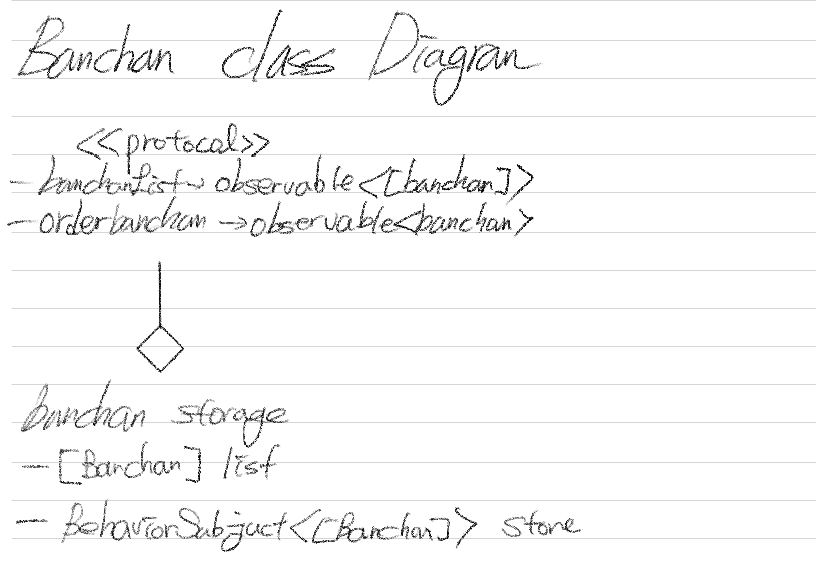 Banchan class Diagran
<<protocal>>
- banchanList → observable<[banchan]>
- orderbanchan → observable<banchan>
Banchan storage
- [Banchan] list
- BehaviorSubjuct<[Banchan]> store